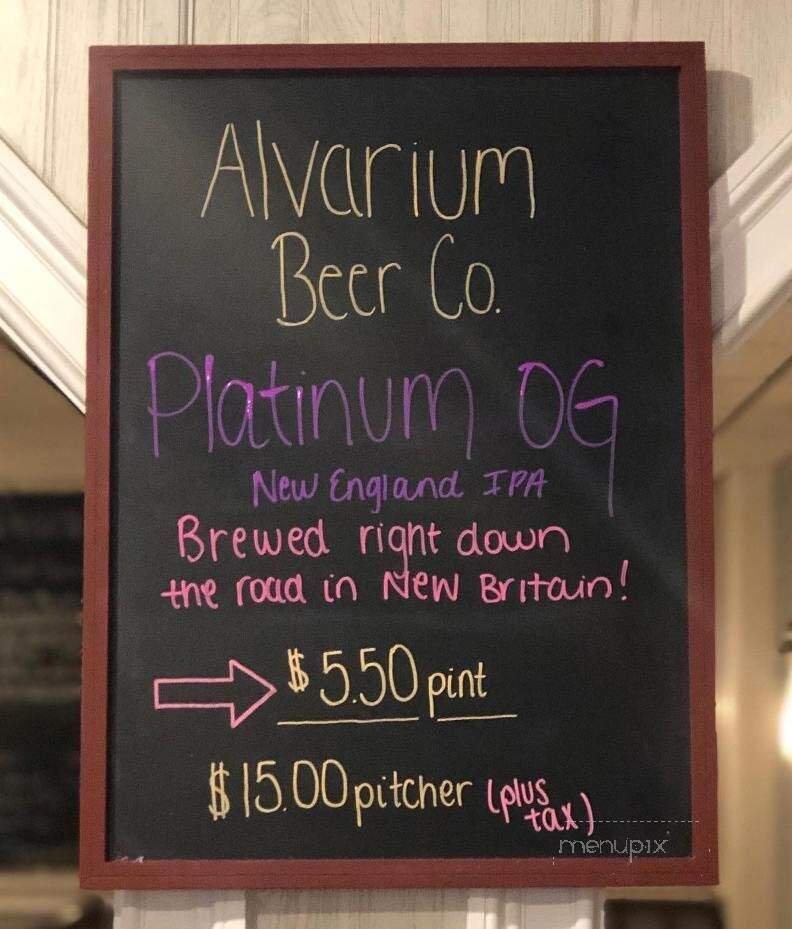 Alvarium
Beer Co.
Platinum OG
New England IPA
Brewed right down
the road in New Britain!
$5.50 pint
$15.00 pitcher (plus
tax)
menupix